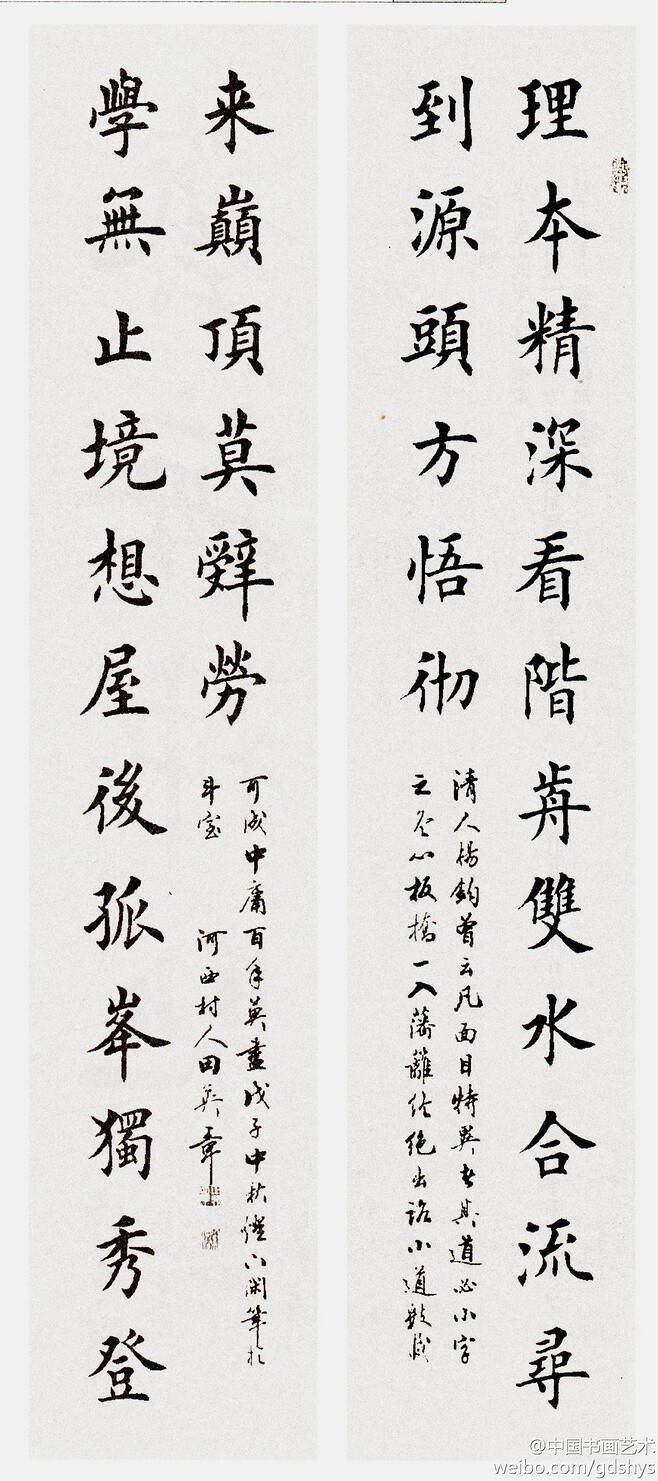 理本精深看階前雙水合流尋
到源頭方悟彻
清人楊鈞曾云凡面目特異者其道必小字
之冬心板橋一入藩籬終絕出路小道
學無止境想屋後孤峯獨秀登
来巔頂莫辤勞
可成中庸百年莫盡戊子中秋燈下閑筆於
斗室 河西村人田英章
@中国书画艺术
weibo.com/gdshys